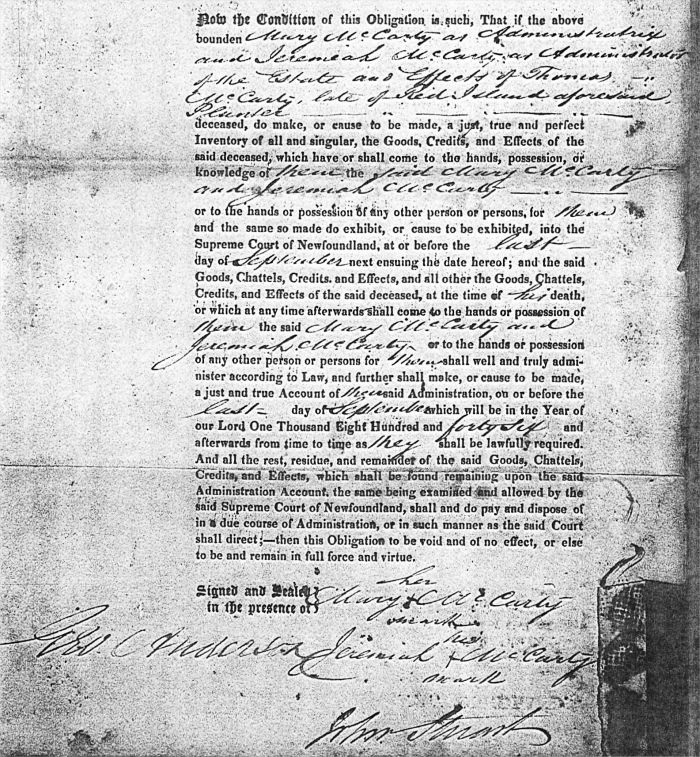 Now the Condition of this Obligation is such, That if the above
bounden Mary McCarty as Administratrix
and Jeremiah McCarty as Administrator
of the Estate and Effects of Thomas
McCarty, late of Red Island aforesaid
Planter
deceased, do make, or cause to be made, a just, true and perfect
Inventory of all and singular, the Goods, Credits, and Effects of the
said deceased, which have or shall come to the hands, possession, or
knowledge of them the said Mary McCarty
and Jeremiah McCarty
or to the hands or possession of any other person or persons, for them
and the same so made do exhibit, or cause to be exhibited, into the
Supreme Court of Newfoundland, at or before the last
day of September next ensuing the date hereof; and the said
Goods, Chattels, Credits. and Effects, and all other the Goods, Chattels,
Credits, and Effects of the said deceased, at the time of his death,
or which at any time afterwards shall come to the hands or possession of
them the said Mary McCarty and
Jeremiah McCarty or to the hands or possession
of any other person or persons for them shall well and truly admi-
nister according to Law, and further shall make, or cause to be made,
a just and true Account of their said Administration, on or before the
last day of September which will be in the Year of
our Lord One Thousand Eight Hundred and forty six and
afterwards from time to time as they shall be lawfully required.
And all the rest, residue, and remainder of the said Goods, Chattels,
Credits, and Effects, which shall be found remaining upon the said
Administration Account, the same being examined and allowed by the
said Supreme Court of Newfoundland, shall and do pay and dispose of
in a due course of Administration, or in such manner as the said Court
shall direct;—then this Obligation to be void and of no effect, or else
to be and remain in full force and virtue.
her
Signed and Sealed Mary x McCarty
in the presence of mark
his
Geo. Anderson Jeremiah x McCarty
mark
John Stuart